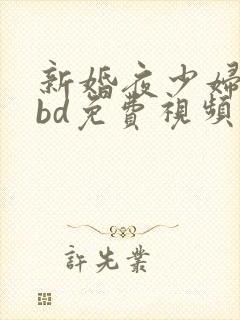 新婚夜少婦
bd免費視頻
許先業